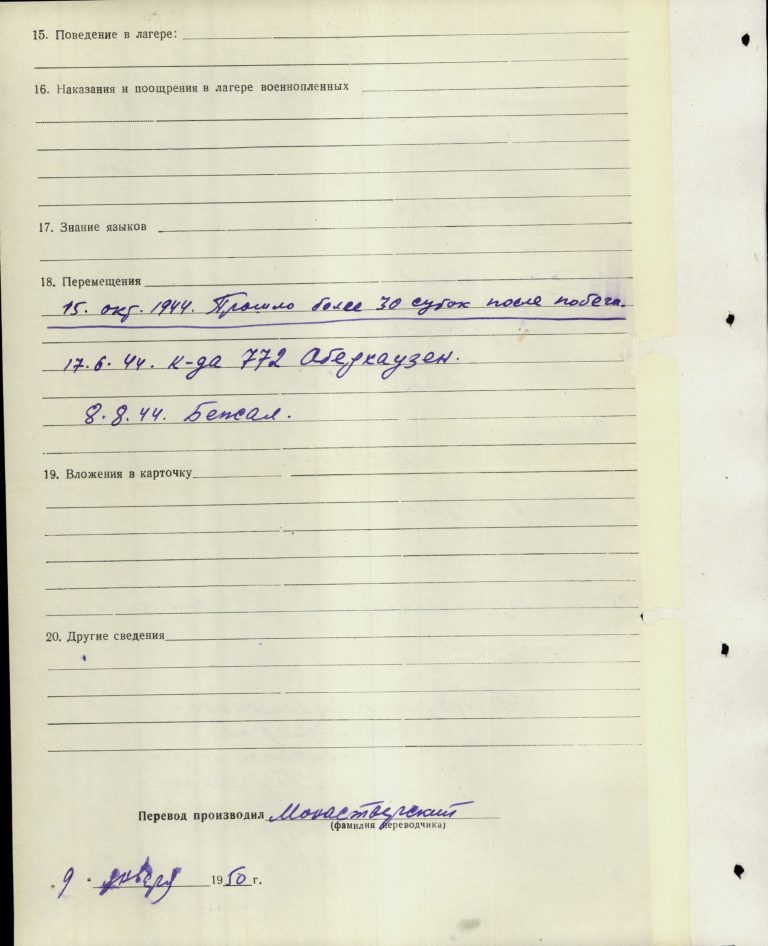 15. Поведение в лагере:
16. Наказания и поощрения в лагере военнопленных
17. Знание языков
18. Перемещения
15. окт. 1944. Прошло более 30 суток после побега.
17.6.44. К-да 772 Оберхаузен.
8.8.44. Бежал.
19. Вложения в карточку
20. Другие сведения
Перевод производил Монастырский
(фамилия переводчика)
„9" января 1950 г.